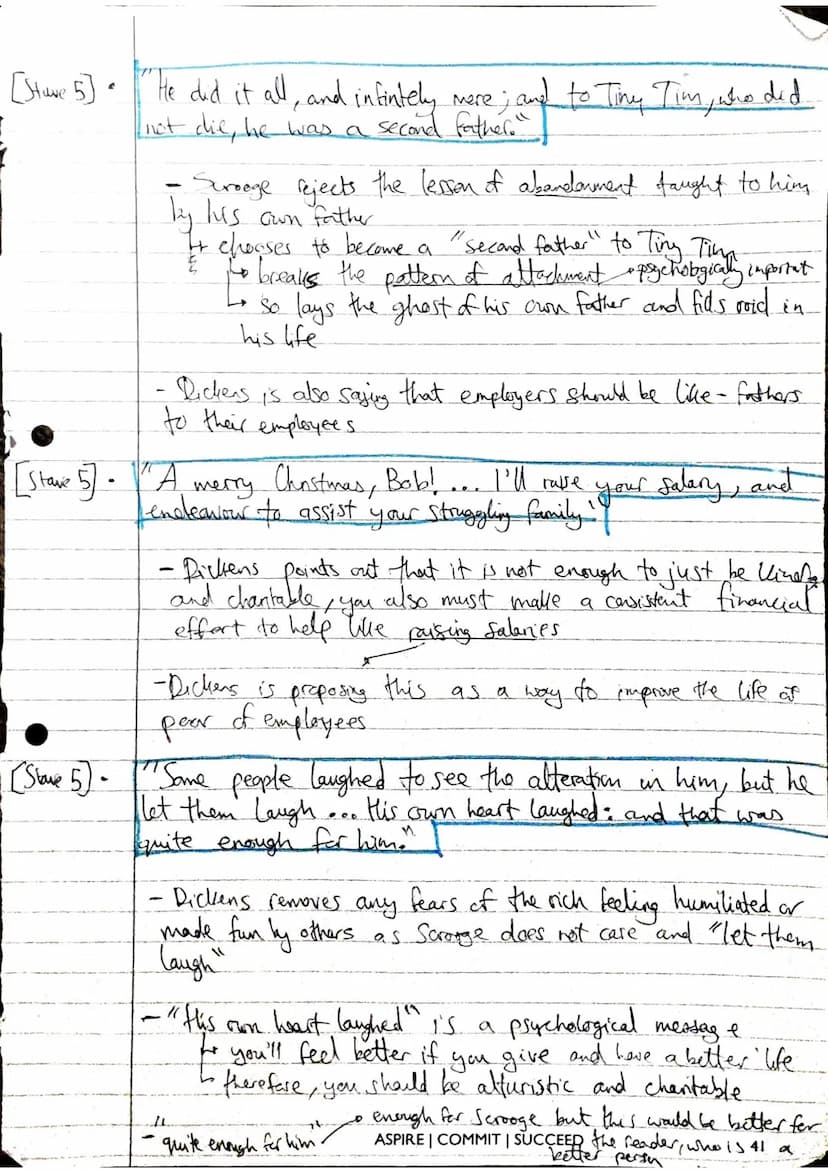 [Stave 5] • "He did it all, and infintely more; and to Tiny Tim, who did
not die, he was a second father."
- Scrooge rejects the lesson of abandonment taught to him
by his own father
↳ chooses to become a "second father" to Tiny Tim
↳ breaks the pattern of attachment → psychologically important
↳ so lays the ghost of his own father and fids void in
his life
- Dickens is also saying that employers should be like-fathers
to their employees
[Stave 5] • "A merry Christmas, Bob! ... I'll raise your salary, and
endeavour to assist your struggling family"
- Dickens points out that it is not enough to just be kind
and charitable, you also must make a consistent financial
effort to help like raising salaries
- Dickens is proposing this as a way to improve the life of
poor of employees
[Stave 5] • "Some people laughed to see the alteration in him, but he
let them laugh ... His own heart laughed: and that was
quite enough for him."
- Dickens removes any fears of the rich feeling humiliated or
made fun by others as Scrooge does not care and "let them
laugh"
- "His own heart laughed" is a psychological message
↳ you'll feel better if you give and have a better life
↳ therefore, you should be alturistic and charitable
- "quite enough for him" → enough for Scrooge but this would be better for
the reader, who is a
better person
ASPIRE | COMMIT | SUCCEED
41